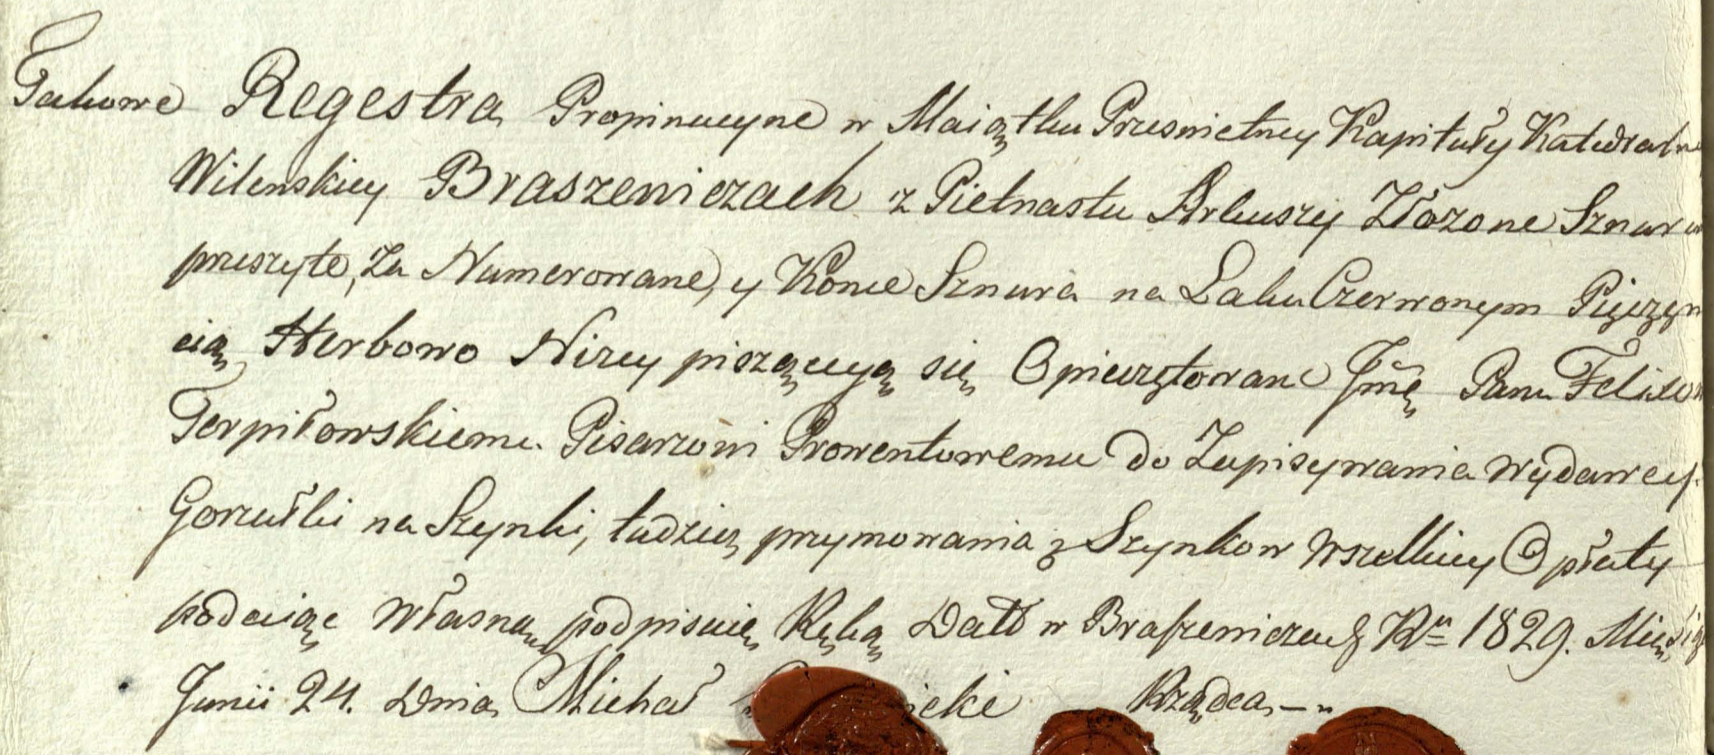 Takowe Regestra Propinacyne w Maiątku Przeswietney Kapituły Katedralne
Wilenskiey Braszewiczach z Pietnastu Arkuszy Złozone Sznurem
przeszyte, za Numerowane, y Konce Sznura na Laku Czerwonym Pięczęn
cią Herbowo Nizey piszącyą się Opieczętowane Jmę Panu Felixowi
Terpiłowskiemu Pisarzowi Prowentowemu do Zapisywania Wydawcey
Gorzałki na Szynki, tudziesz przymowania z Szynkow wszelkiey Opłaty
podaiąc Własną podpisuię Ręką Datt w Braszewiczach Rm 1829. Miesią
Junii 24. Dnia Michał icki Rządca